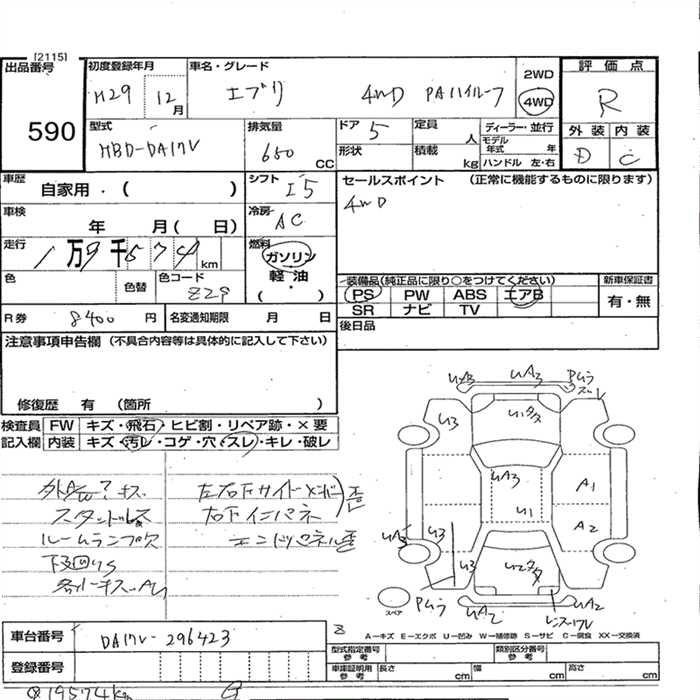 [2115]
出品番号 590
初度登録年月 H29 12月
車名・グレード エブリ 4WD PAハイルーフ
2WD
4WD
評価点 R
外装 D 内装 C
型式 HBD-DA17V
排気量 650 CC
ドア 5
形状
定員 人
積載 kg
ディーラー・並行
モデル年式 年
ハンドル 左・右
車歴 自家用・( )
シフト I5
セールスポイント (正常に機能するものに限ります)
4WD
車検 年 月( 日)
冷房 AC
走行 1万9千574km
燃料 ガソリン
軽・油
( )
色 色替
色コード Z29
装備品(純正品に限り○をつけてください)
PS PW ABS エアB
SR ナビ TV
新車保証書
有・無
R券 8400円
名変通知期限 月 日
後日品
注意事項申告欄 (不具合内容等は具体的に記入して下さい)
修復歴 有 (箇所 )
検査員記入欄
FW キズ・飛石・ヒビ割・リペア跡・×要
内装 キズ・汚レ・コゲ・穴・スレ・キレ・破レ
ルームランプ欠
下回りS
左右下サイドメンバ
右下インパネ
エンドパネル歪
UA3 UA3
U3
U1
UA3
U1
A1
A2
UA3
U3
U3
UA2
UA2
スペア
A−キズ E−エクボ U−凹み W−補修跡 S−サビ C−腐食 XX−交換済
車台番号 DA17V-296423
登録番号
型式指定番号 参考
類別区分番号 参考
車庫証明用 参考
長さ cm
幅 cm
高さ cm
19574km